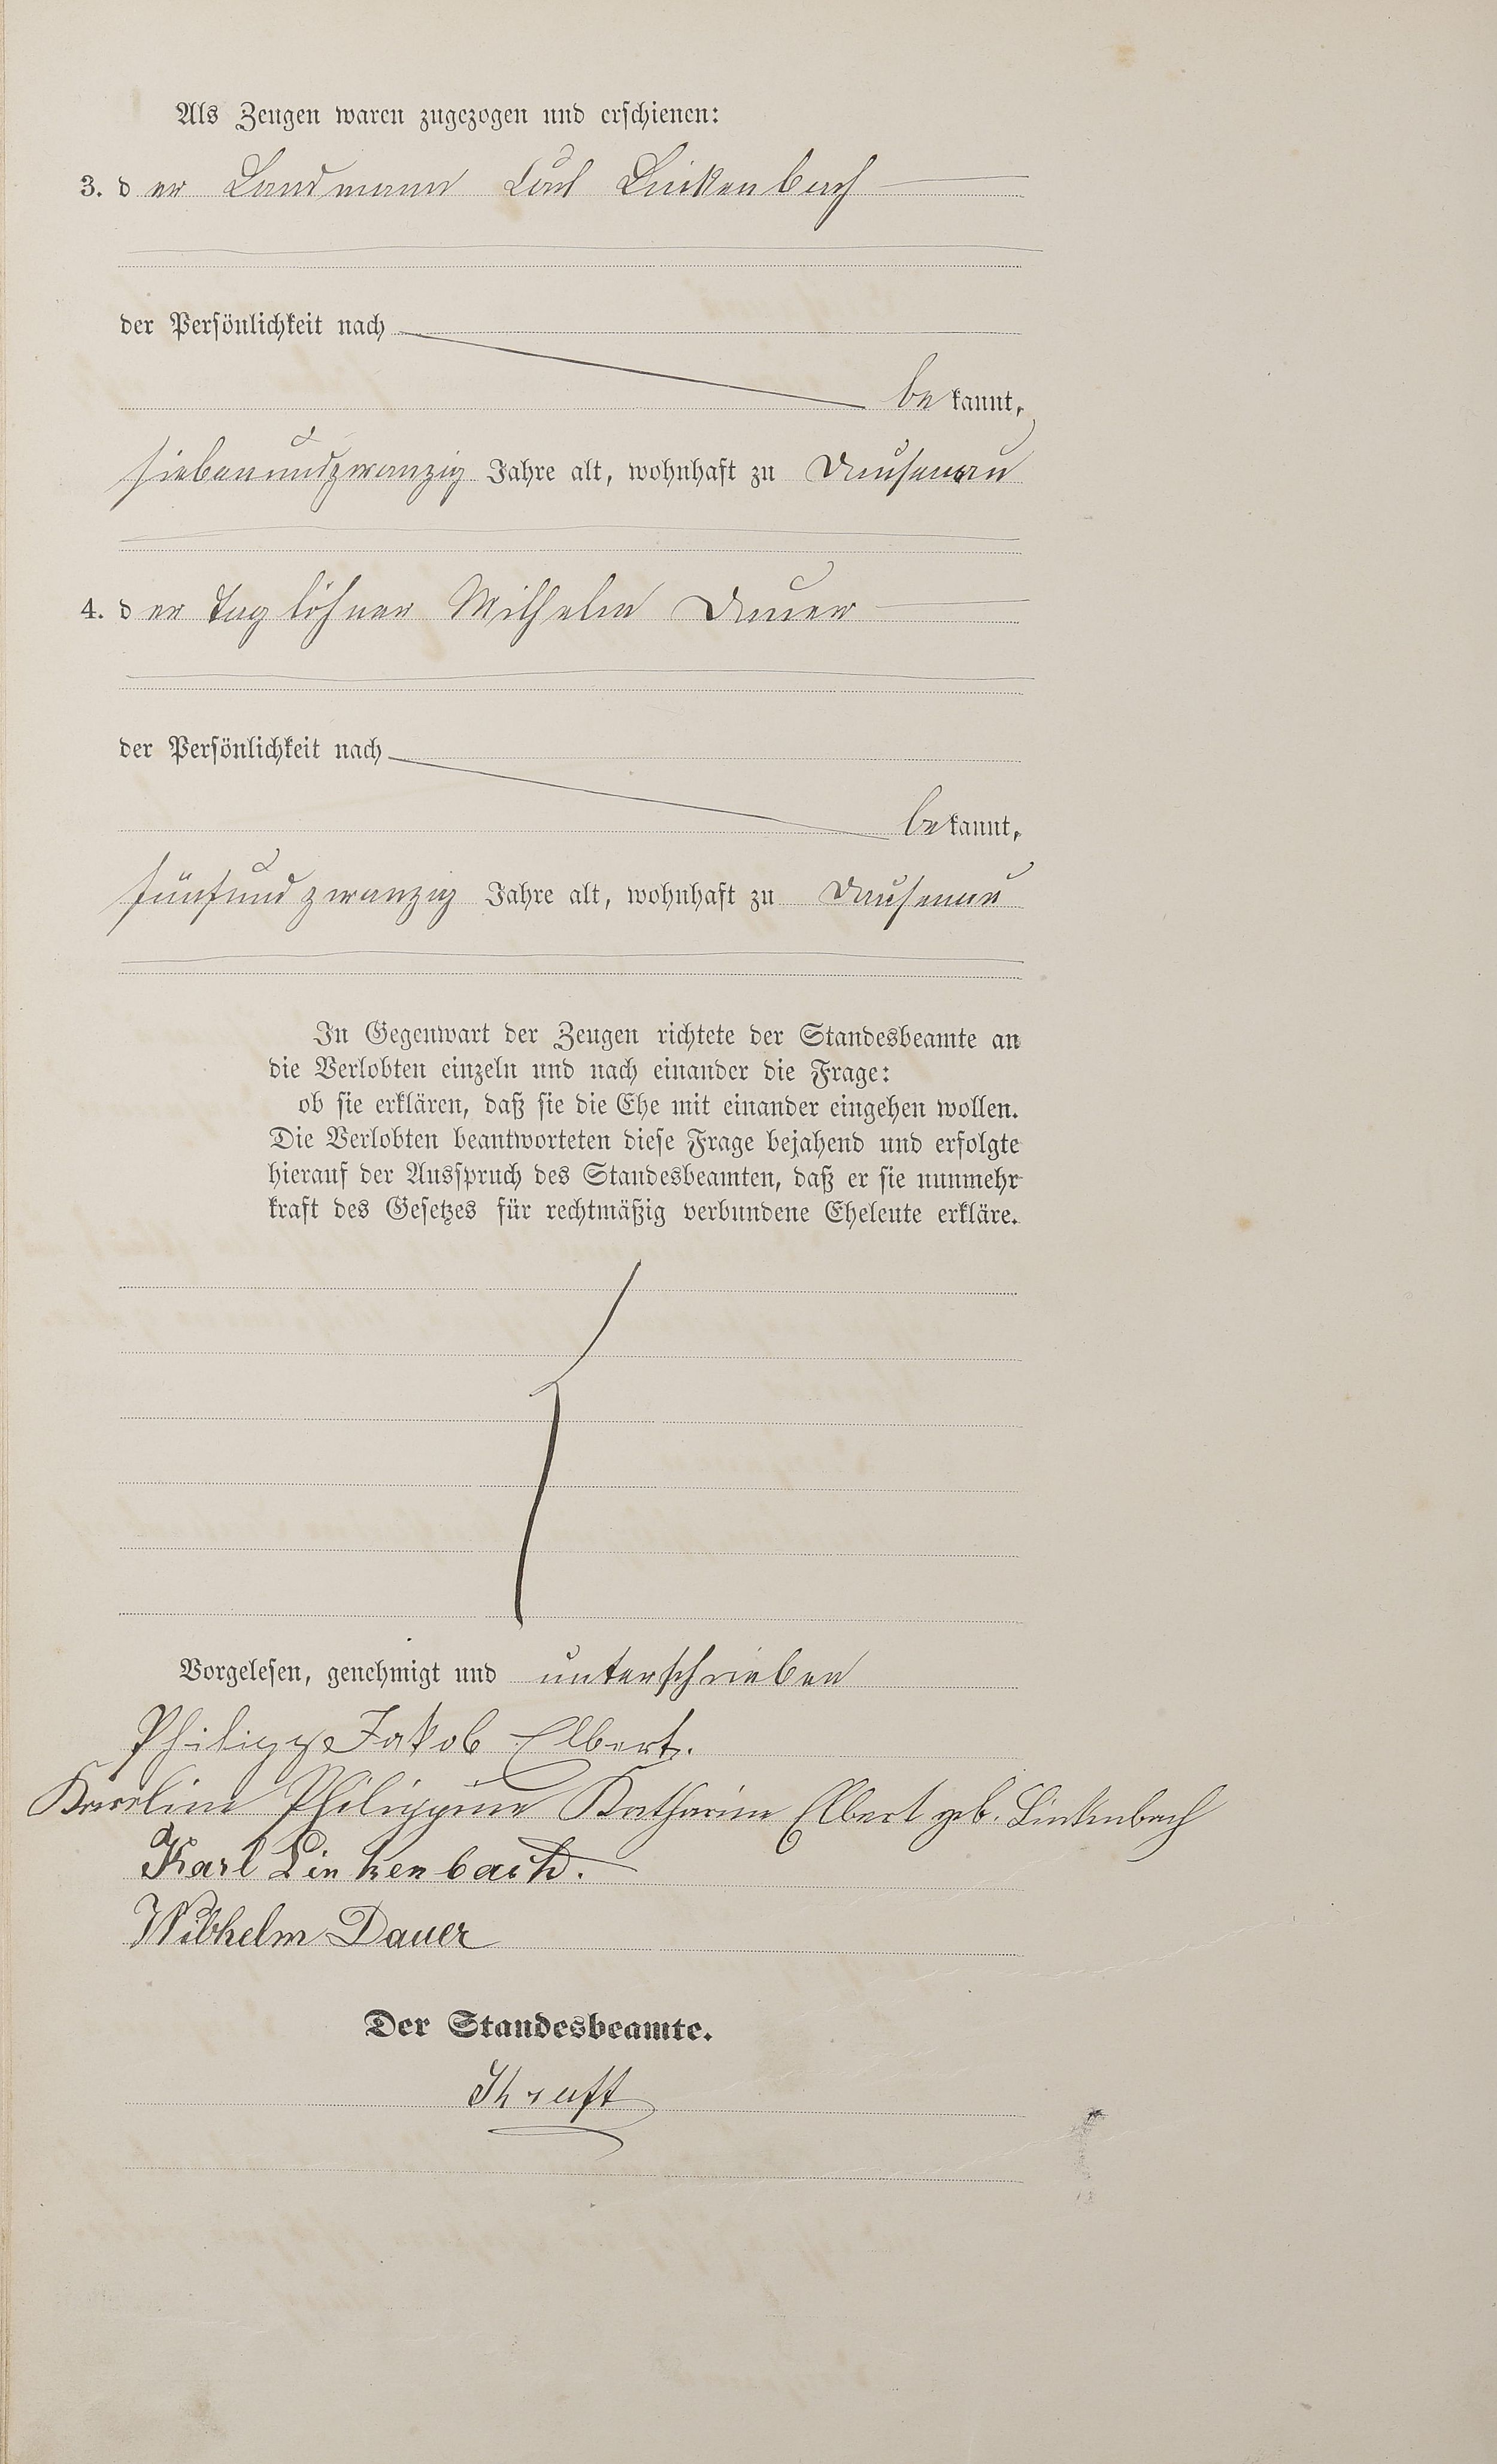 Als Zeugen waren zugezogen und erschienen:
3. der Landmann Carl Linkenbach
der Persönlichkeit nach
bekannt,
siebenundzwanzig Jahre alt, wohnhaft zu Dausenau
4. der Taglöhner Wilhelm Dauer
der Persönlichkeit nach
bekannt,
fünfundzwanzig Jahre alt, wohnhaft zu Dausenau
In Gegenwart der Zeugen richtete der Standesbeamte an
die Verlobten einzeln und nach einander die Frage:
ob sie erklären, daß sie die Ehe mit einander eingehen wollen.
Die Verlobten beantworteten diese Frage bejahend und erfolgte
hierauf der Ausspruch des Standesbeamten, daß er sie nunmehr
kraft des Gesetzes für rechtmäßig verbundene Eheleute erkläre.
Vorgelesen, genehmigt und unterschrieben
Philipp Jakob Elbert.
Karoline Philippine Katharine Elbert geb. Linkenbach
Karl Linkenbach.
Wilhelm Dauer
Der Standesbeamte.
Kraft